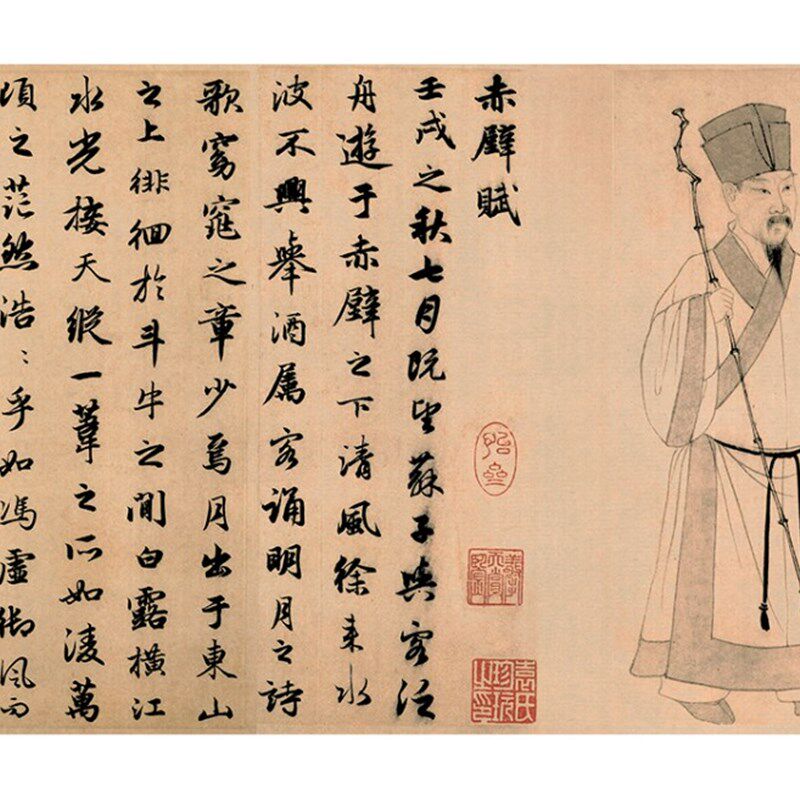 赤壁賦
壬戌之秋七月既望蘇子與客泛
舟遊于赤壁之下清風徐来水
波不興舉酒属客誦明月之詩
歌窈窕之章少焉月出于東山
之上徘徊於斗牛之間白露橫江
水光接天縱一葦之所如淩萬
頃之茫然浩：乎如馮虛御風而
袁氏